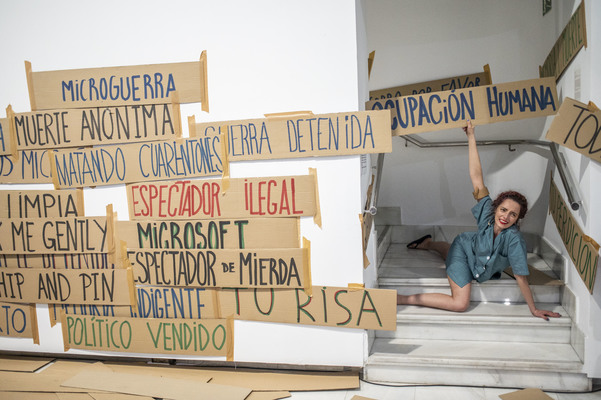 MICROGUERRA
MUERTE ANÓNIMA
GUERRA DETENIDA
POR FAVOR
OCUPACIÓN HUMANA
MATANDO CUARENTONES
ESPECTADOR ILEGAL
LIMPIA
ME GENTLY
MICROSOFT
ESPECTADOR DE MIERDA
HIP AND PIN
INDIGENTE
TU RISA
POLÍTICO VENDIDO
TODO